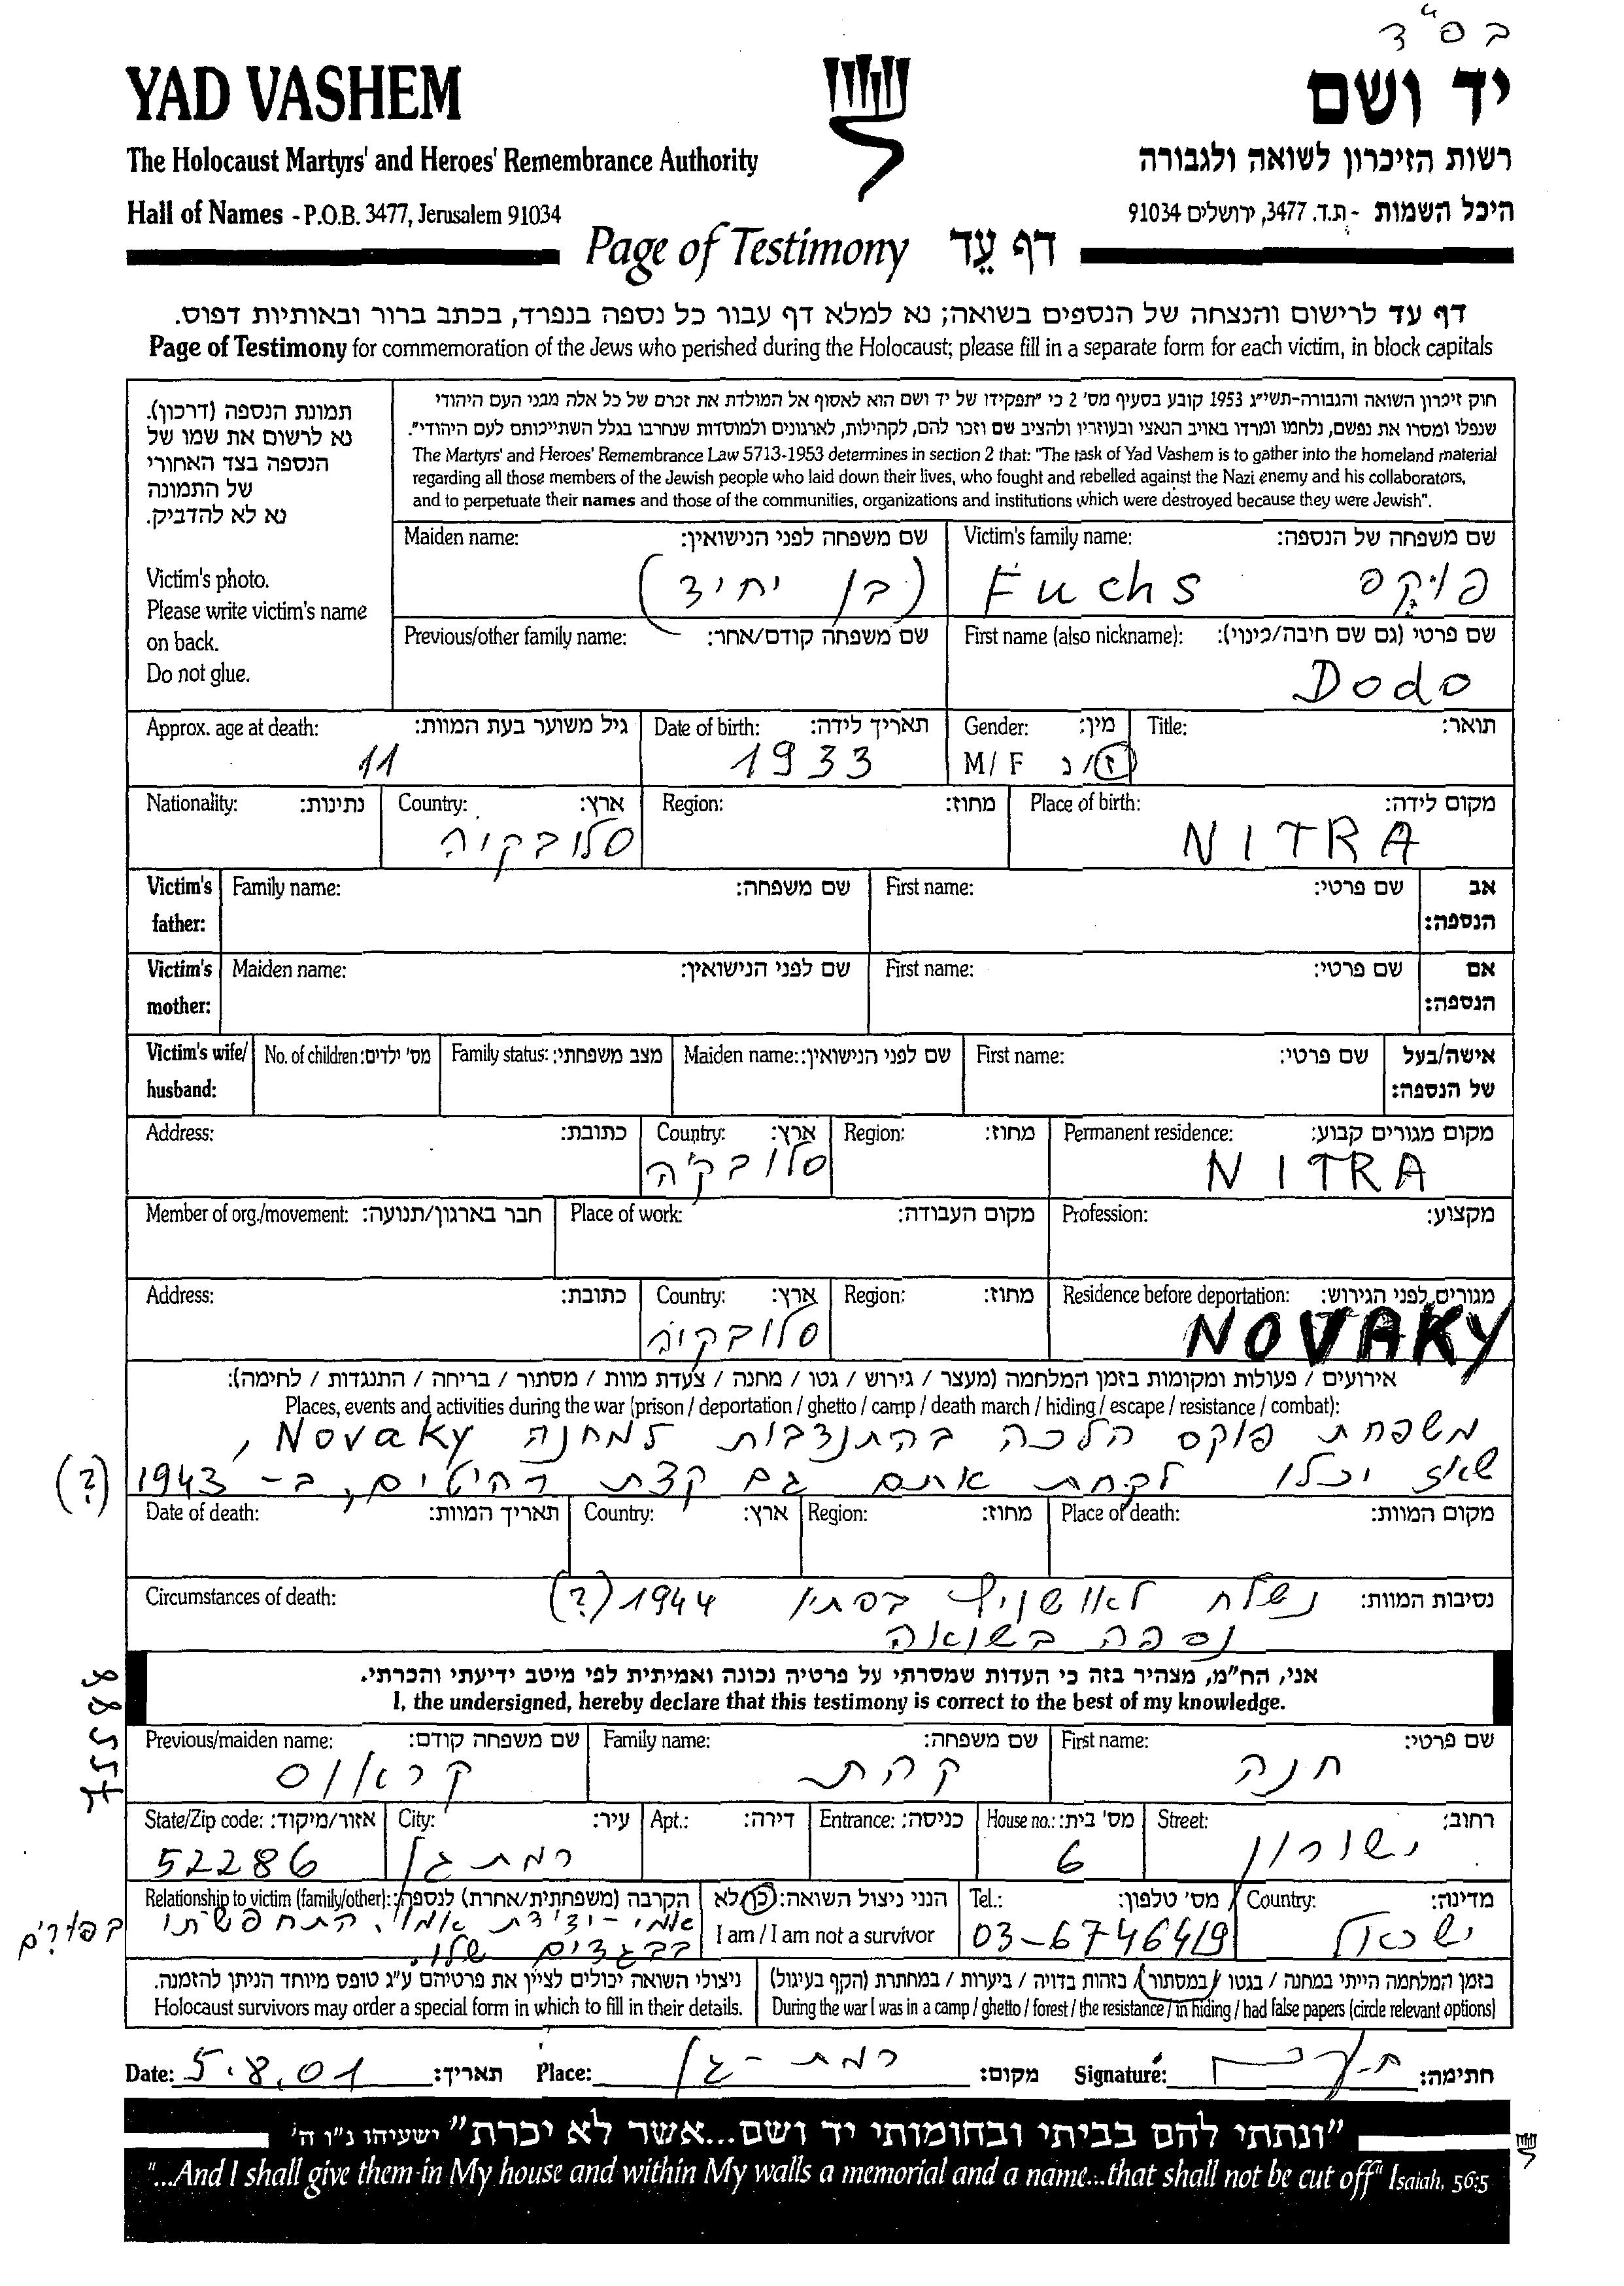 בס"ד
YAD VASHEM
יד ושם
The Holocaust Martyrs' and Heroes' Remembrance Authority
רשות הזיכרון לשואה ולגבורה
Hall of Names - P.O.B. 3477, Jerusalem 91034
היכל השמות - ת.ד. 3477, ירושלים 91034
Page of Testimony דף עֵד
דף עד לרישום והנצחה של הנספים בשואה; נא למלא דף עבור כל נספה בנפרד, בכתב ברור ובאותיות דפוס.
Page of Testimony for commemoration of the Jews who perished during the Holocaust; please fill in a separate form for each victim, in block capitals
תמונת הנספה (דרכון).
נא לרשום את שמו של
הנספה בצד האחורי
של התמונה
נא לא להדביק.
Victim's photo.
Please write victim's name
on back.
Do not glue.
חוק זיכרון השואה והגבורה-תשי"ג 1953 קובע בסעיף מס' 2 כי "תפקידו של יד ושם הוא לאסוף אל המולדת את זכרם של כל אלה מבני העם היהודי
שנפלו ומסרו את נפשם, נלחמו ומרדו באויב הנאצי ובעוזריו ולהציב שם וזכר להם, לקהילות, לארגונים ולמוסדות שנחרבו בגלל השתייכותם לעם היהודי".
The Martyrs' and Heroes' Remembrance Law 5713-1953 determines in section 2 that: "The task of Yad Vashem is to gather into the homeland material
regarding all those members of the Jewish people who laid down their lives, who fought and rebelled against the Nazi enemy and his collaborators,
and to perpetuate their names and those of the communities, organizations and institutions which were destroyed because they were Jewish".
Maiden name: שם משפחה לפני הנישואין: Victim's family name: שם משפחה של הנספה:
(בן יחיד) Fuchs פוקס
Previous/other family name: שם משפחה קודם/אחר: First name (also nickname): שם פרטי (גם שם חיבה/כינוי):
Dodo
Approx. age at death: גיל משוער בעת המוות: Date of birth: תאריך לידה: Gender: מין: Title: תואר:
11 1933 M/F ז/נ
Nationality: נתינות: Country: ארץ: Region: מחוז: Place of birth: מקום לידה:
סלובקיה NITRA
Victim's father: Family name: שם משפחה: First name: שם פרטי: אב הנספה:
Victim's mother: Maiden name: שם לפני הנישואין: First name: שם פרטי: אם הנספה:
Victim's wife/husband: No. of children: מס' ילדים: Family status: מצב משפחתי: Maiden name: שם לפני הנישואין: First name: שם פרטי: אישה/בעל של הנספה:
Address: כתובת: Country: ארץ: Region: מחוז: Permanent residence: מקום מגורים קבוע:
סלובקיה NITRA
Member of org./movement: חבר בארגון/תנועה: Place of work: מקום העבודה: Profession: מקצוע:
Address: כתובת: Country: ארץ: Region: מחוז: Residence before deportation: מגורים לפני הגירוש:
סלובקיה NOVAKY
אירועים / פעולות ומקומות בזמן המלחמה (מעצר / גירוש / גטו / מחנה / צעדת מוות / מסתור / בריחה / התנגדות / לחימה):
Places, events and activities during the war (prison / deportation / ghetto / camp / death march / hiding / escape / resistance / combat):
משפחת פוקס הלכה בהתנדבות למחנה Novaky,
שאז יכלו לקחת אתם גם קצת רהיטים, ב- 1943 (?)
Date of death: תאריך המוות: Country: ארץ: Region: מחוז: Place of death: מקום המוות:
Circumstances of death: נסיבות המוות:
נשלח לאושויץ בסתיו 1944 (?)
נספה בשואה
אני, הח"מ, מצהיר בזה כי העדות שמסרתי על פרטיה נכונה ואמיתית לפי מיטב ידיעתי והכרתי.
I, the undersigned, hereby declare that this testimony is correct to the best of my knowledge.
Previous/maiden name: שם משפחה קודם: Family name: שם משפחה: First name: שם פרטי:
קראוס קהת חנה
State/Zip code: אזור/מיקוד: City: עיר: Apt.: דירה: Entrance: כניסה: House no.: מס' בית: Street: רחוב:
52286 רמת גן 6 ישורון
Relationship to victim (family/other): הקרבה (משפחתית/אחרת) לנספה: הנני ניצול השואה: כן/לא Tel.: מס' טלפון: Country: מדינה:
I am / I am not a survivor 03-6746419 ישראל
אמי - ידידת אמו. התחפשתי
בבגדים שלו. בפורים
ניצולי השואה יכולים לציין את פרטיהם ע"ג טופס מיוחד הניתן להזמנה.
Holocaust survivors may order a special form in which to fill in their details.
בזמן המלחמה הייתי במחנה / בגטו / במסתור / בזהות בדויה / ביערות / במחתרת (הקף בעיגול)
During the war I was in a camp / ghetto / forest / the resistance / in hiding / had false papers (circle relevant options)
Date: 5.8.01 תאריך: Place: רמת-גן מקום: Signature: חתימה:
"ונתתי להם בביתי ובחומותי יד ושם...אשר לא יכרת" ישעיהו נ"ו ה'
"...And I shall give them in My house and within My walls a memorial and a name...that shall not be cut off" Isaiah, 56:5